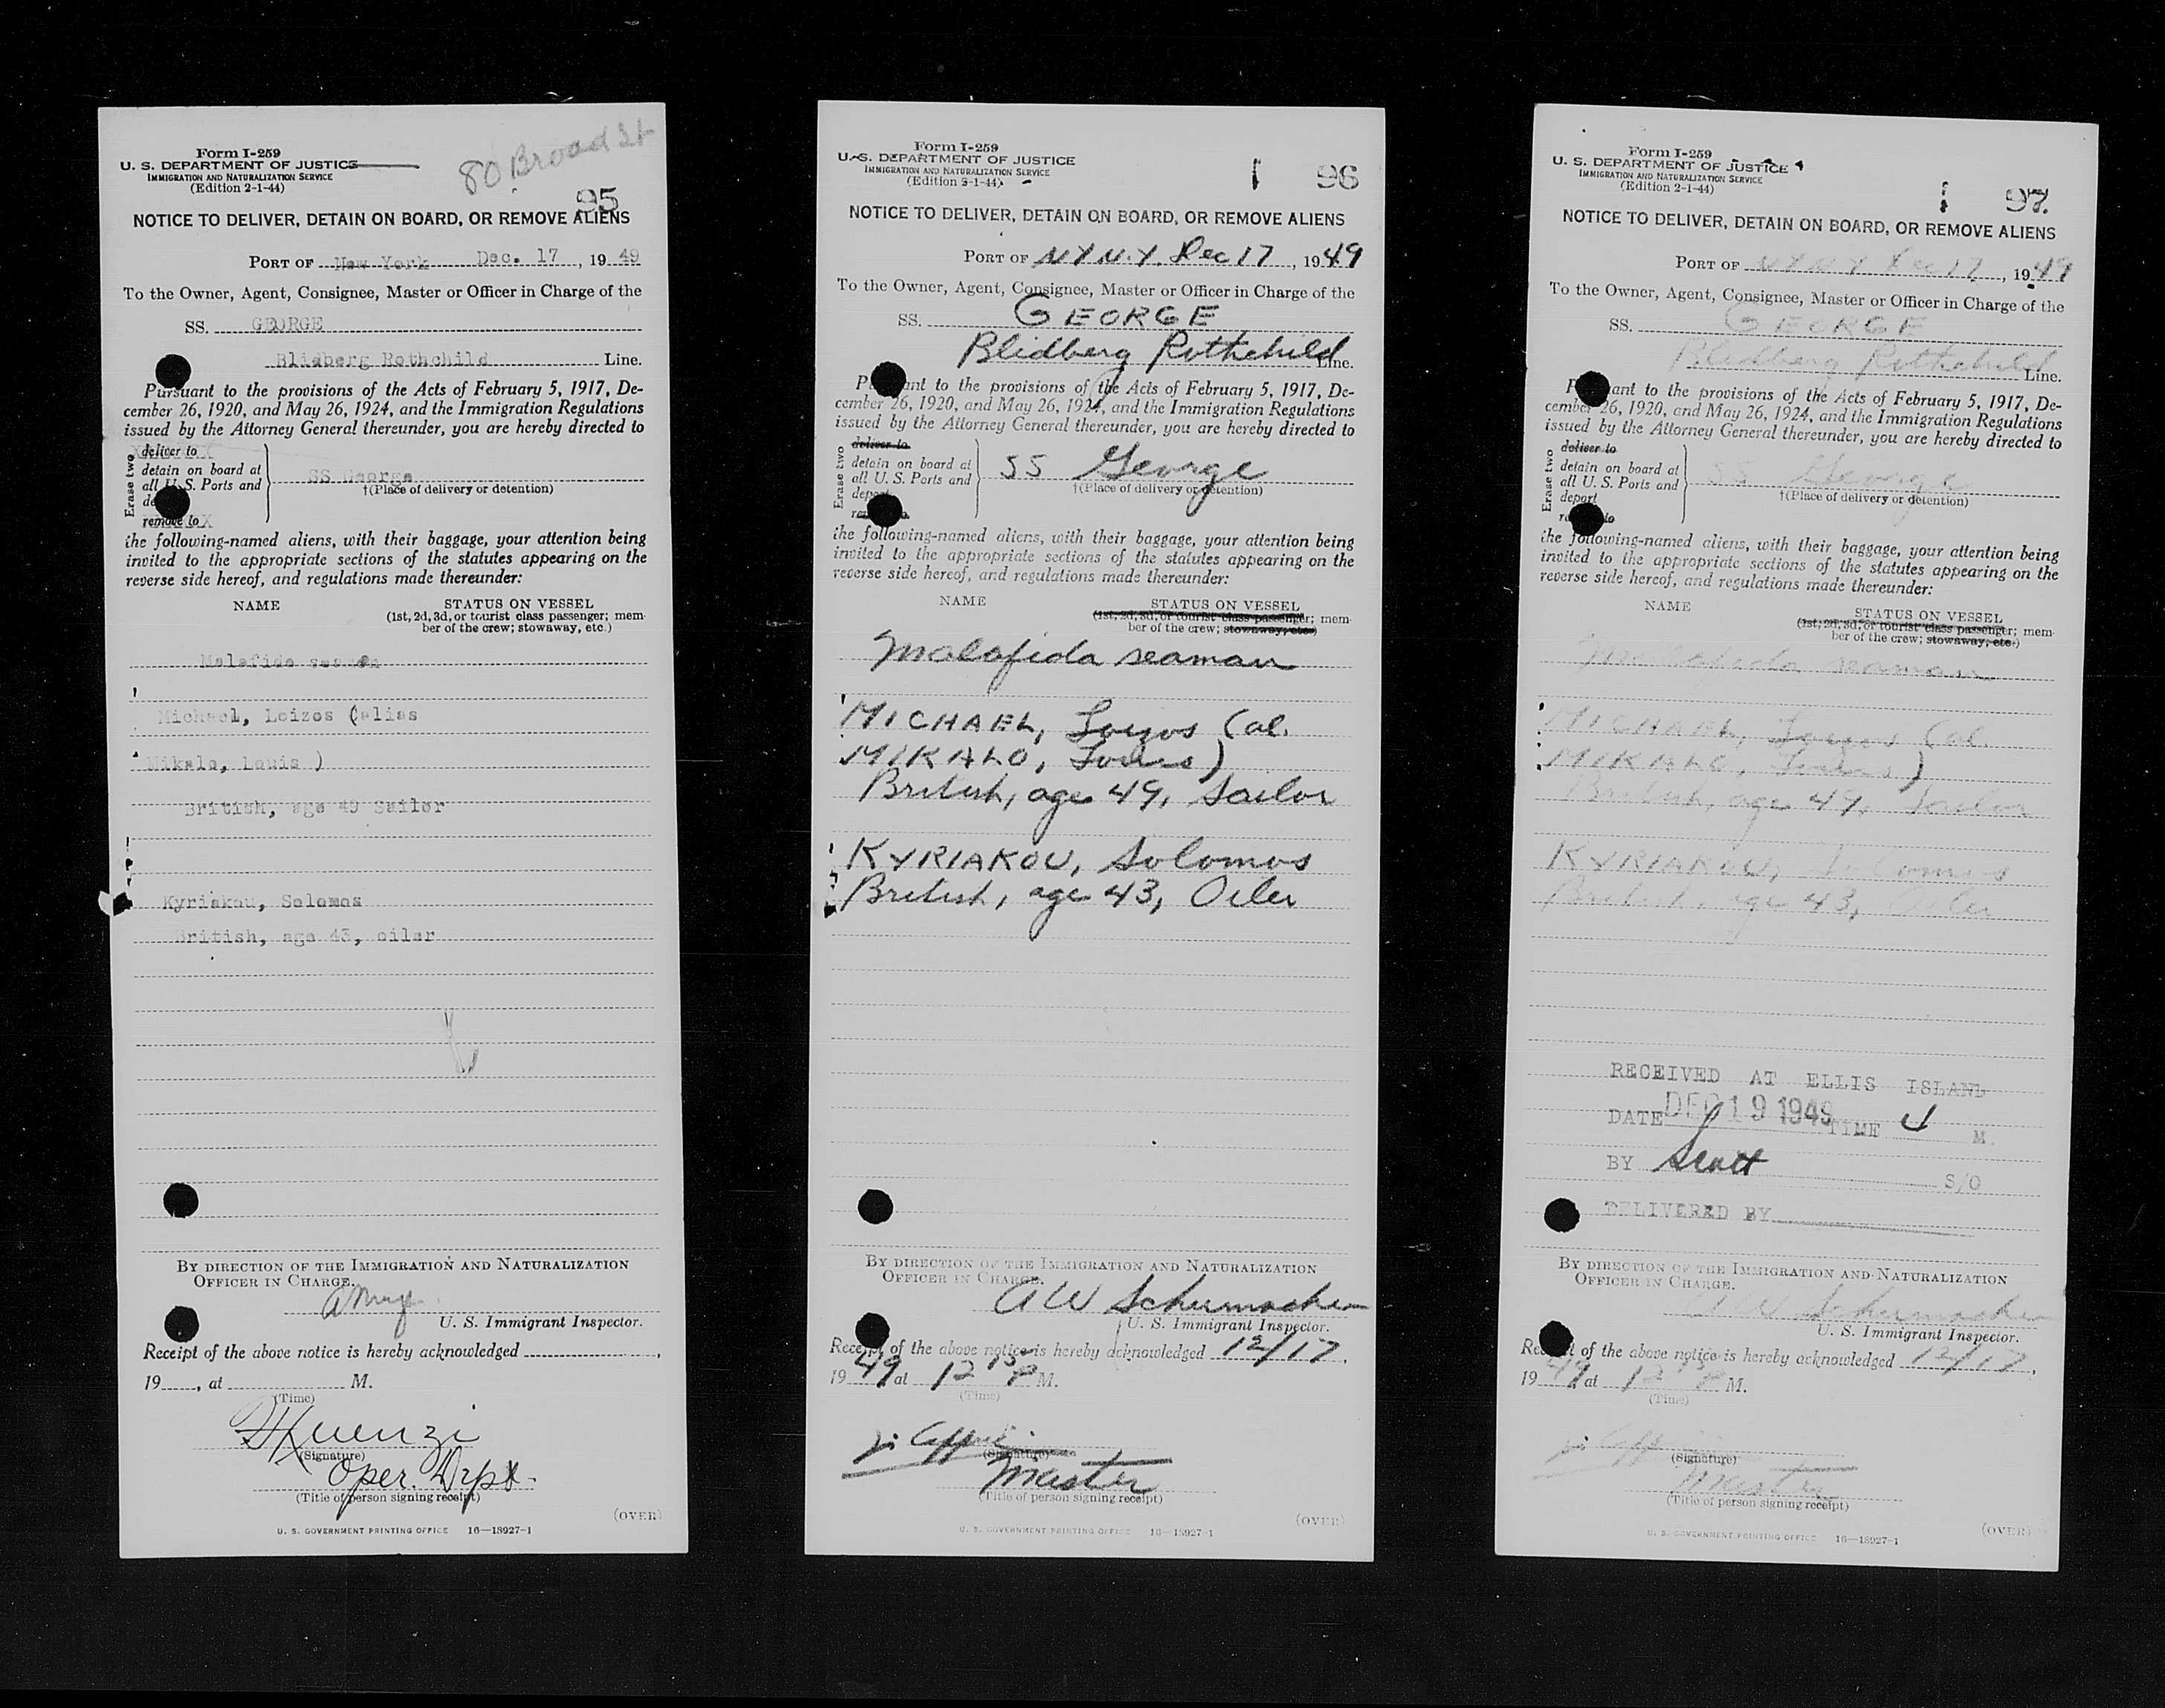 Form I-259
U. S. DEPARTMENT OF JUSTICE
IMMIGRATION AND NATURALIZATION SERVICE
(Edition 2-1-44)
80 Broad St
95
NOTICE TO DELIVER, DETAIN ON BOARD, OR REMOVE ALIENS
PORT OF New York Dec. 17, 19 49
To the Owner, Agent, Consignee, Master or Officer in Charge of the
SS. GEORGE
Blidberg Rothchild Line.
Pursuant to the provisions of the Acts of February 5, 1917, De-
cember 26, 1920, and May 26, 1924, and the Immigration Regulations
issued by the Attorney General thereunder, you are hereby directed to
Erase two
deliver to
detain on board at
all U. S. Ports and
de
remove to
SS George
†(Place of delivery or detention)
the following-named aliens, with their baggage, your attention being
invited to the appropriate sections of the statutes appearing on the
reverse side hereof, and regulations made thereunder:
NAME STATUS ON VESSEL
(1st, 2d, 3d, or tourist class passenger; mem-
ber of the crew; stowaway, etc.)
Malafide seaman
Michael, Loizos (alias
Mikalo, Louis )
British, age 49 Sailor
Kyriakou, Solomos
British, age 43, oiler
BY DIRECTION OF THE IMMIGRATION AND NATURALIZATION
OFFICER IN CHARGE.
U. S. Immigrant Inspector.
Receipt of the above notice is hereby acknowledged ,
19 , at M.
(Time)
Kuenzi
(Signature)
Oper. Dept.
(Title of person signing receipt)
(OVER)
U. S. GOVERNMENT PRINTING OFFICE 16—18927-1
Form I-259
U. S. DEPARTMENT OF JUSTICE
IMMIGRATION AND NATURALIZATION SERVICE
(Edition 2-1-44)
96
NOTICE TO DELIVER, DETAIN ON BOARD, OR REMOVE ALIENS
PORT OF N Y N.Y. Dec 17, 1949
To the Owner, Agent, Consignee, Master or Officer in Charge of the
SS. GEORGE
Blidberg Rothchild Line.
P ant to the provisions of the Acts of February 5, 1917, De-
cember 26, 1920, and May 26, 1924, and the Immigration Regulations
issued by the Attorney General thereunder, you are hereby directed to
Erase two
deliver to
detain on board at
all U. S. Ports and
deport
SS George
†(Place of delivery or detention)
the following-named aliens, with their baggage, your attention being
invited to the appropriate sections of the statutes appearing on the
reverse side hereof, and regulations made thereunder:
NAME STATUS ON VESSEL
(1st, 2d, 3d, or tourist class passenger; mem-
ber of the crew; stowaway, etc.)
Malafida seaman
MICHAEL, Loizos (al.
MIKALO, Louis)
British, age 49, Sailor
KYRIAKOU, Solomos
British, age 43, Oiler
BY DIRECTION OF THE IMMIGRATION AND NATURALIZATION
OFFICER IN CHARGE.
A W Schumacher
U. S. Immigrant Inspector.
Receipt of the above notice is hereby acknowledged 12/17,
1949 at 12 15 P M.
(Time)
(Signature)
Master
(Title of person signing receipt)
(OVER)
U. S. GOVERNMENT PRINTING OFFICE 16—18927-1
Form I-259
U. S. DEPARTMENT OF JUSTICE
IMMIGRATION AND NATURALIZATION SERVICE
(Edition 2-1-44)
97
NOTICE TO DELIVER, DETAIN ON BOARD, OR REMOVE ALIENS
PORT OF N Y N Y Dec 17, 1949
To the Owner, Agent, Consignee, Master or Officer in Charge of the
SS. GEORGE
Blidberg Rothchild Line.
P ant to the provisions of the Acts of February 5, 1917, De-
cember 26, 1920, and May 26, 1924, and the Immigration Regulations
issued by the Attorney General thereunder, you are hereby directed to
Erase two
deliver to
detain on board at
all U. S. Ports and
deport
SS George
†(Place of delivery or detention)
the following-named aliens, with their baggage, your attention being
invited to the appropriate sections of the statutes appearing on the
reverse side hereof, and regulations made thereunder:
NAME STATUS ON VESSEL
(1st, 2d, 3d, or tourist class passenger; mem-
ber of the crew; stowaway, etc.)
Malafida seaman
MICHAEL, Loizos (al.
MIKALO, Louis)
British, age 49, Sailor
KYRIAKOU, Solomos
British, age 43, Oiler
RECEIVED AT ELLIS ISLAND
DATE DEC 19 1949 TIME M.
BY Scott S/O
DELIVERED BY
BY DIRECTION OF THE IMMIGRATION AND NATURALIZATION
OFFICER IN CHARGE.
A W Schumacher
U. S. Immigrant Inspector.
Receipt of the above notice is hereby acknowledged 12/17,
1949 at 12 15 P M.
(Time)
(Signature)
Master
(Title of person signing receipt)
(OVER)
U. S. GOVERNMENT PRINTING OFFICE 16—18927-1